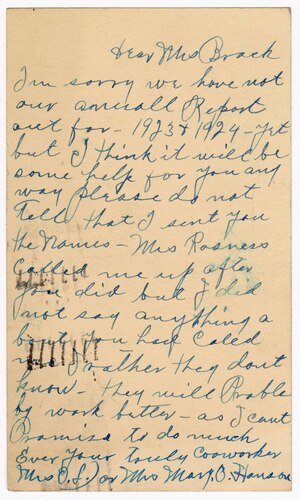 Dear Mrs Brack
I'm sorry we have not
our annuall Report
out for - 1923 + 1924 - yet
but I think it will be
some help for you any
way please do not
Tell that I sent you
the Names - Mrs Rosness
Called me up after
you did but I did
not say anything a
bout you had Caled
me I rather they dont
know - they will Proble
by work better - as I cant
Promise to do much
Ever Your truly Cooworker
Mrs O. J.) or Mrs Mary O. Hanson